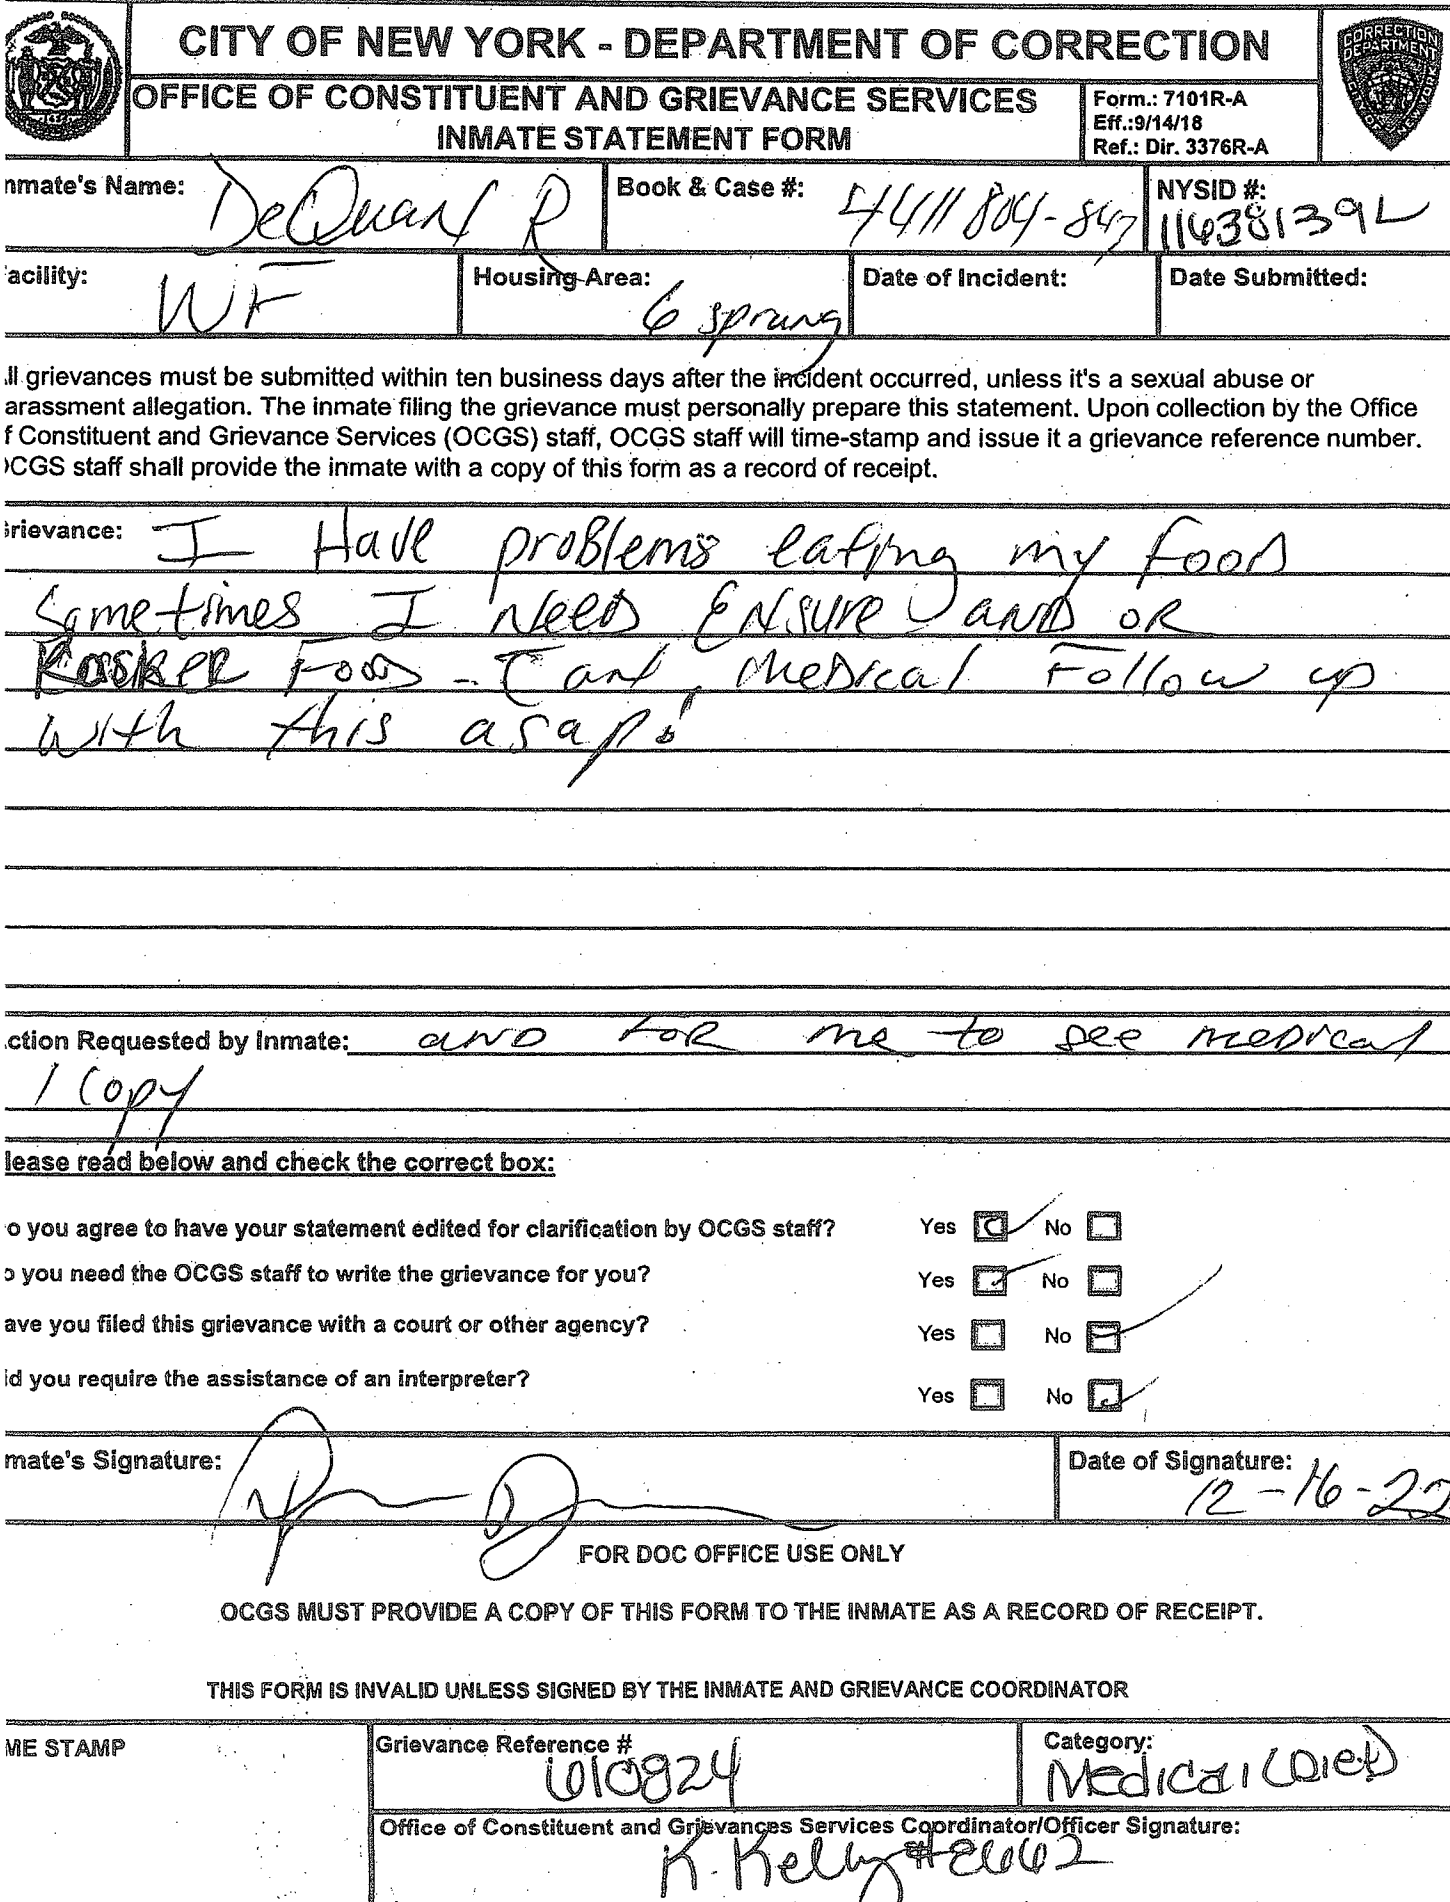 CITY OF NEW YORK - DEPARTMENT OF CORRECTION
OFFICE OF CONSTITUENT AND GRIEVANCE SERVICES
INMATE STATEMENT FORM
Form.: 7101R-A
Eff.:9/14/18
Ref.: Dir. 3376R-A
CORRECTION
DEPARTMENT
nmate's Name: DeQuan R
Book & Case #: 4411804-847
NYSID #: 11638139L
acility: WF
Housing Area: 6 sprung
Date of Incident:
Date Submitted:
ll grievances must be submitted within ten business days after the incident occurred, unless it's a sexual abuse or
arassment allegation. The inmate filing the grievance must personally prepare this statement. Upon collection by the Office
f Constituent and Grievance Services (OCGS) staff, OCGS staff will time-stamp and issue it a grievance reference number.
OCGS staff shall provide the inmate with a copy of this form as a record of receipt.
Grievance: I Have problems eating my Food
Sometimes I Need ENsure and OR
Food - Can, Medical Follow up
with this asap!
ction Requested by Inmate: and FOR me to see medical
1 copy
lease read below and check the correct box:
o you agree to have your statement edited for clarification by OCGS staff? Yes No
o you need the OCGS staff to write the grievance for you? Yes No
ave you filed this grievance with a court or other agency? Yes No
id you require the assistance of an interpreter? Yes No
mate's Signature:
Date of Signature: 12-16-22
FOR DOC OFFICE USE ONLY
OCGS MUST PROVIDE A COPY OF THIS FORM TO THE INMATE AS A RECORD OF RECEIPT.
THIS FORM IS INVALID UNLESS SIGNED BY THE INMATE AND GRIEVANCE COORDINATOR
ME STAMP
Grievance Reference # 610824
Category: Medical (Diet)
Office of Constituent and Grievances Services Coordinator/Officer Signature:
K. Kelly #8662